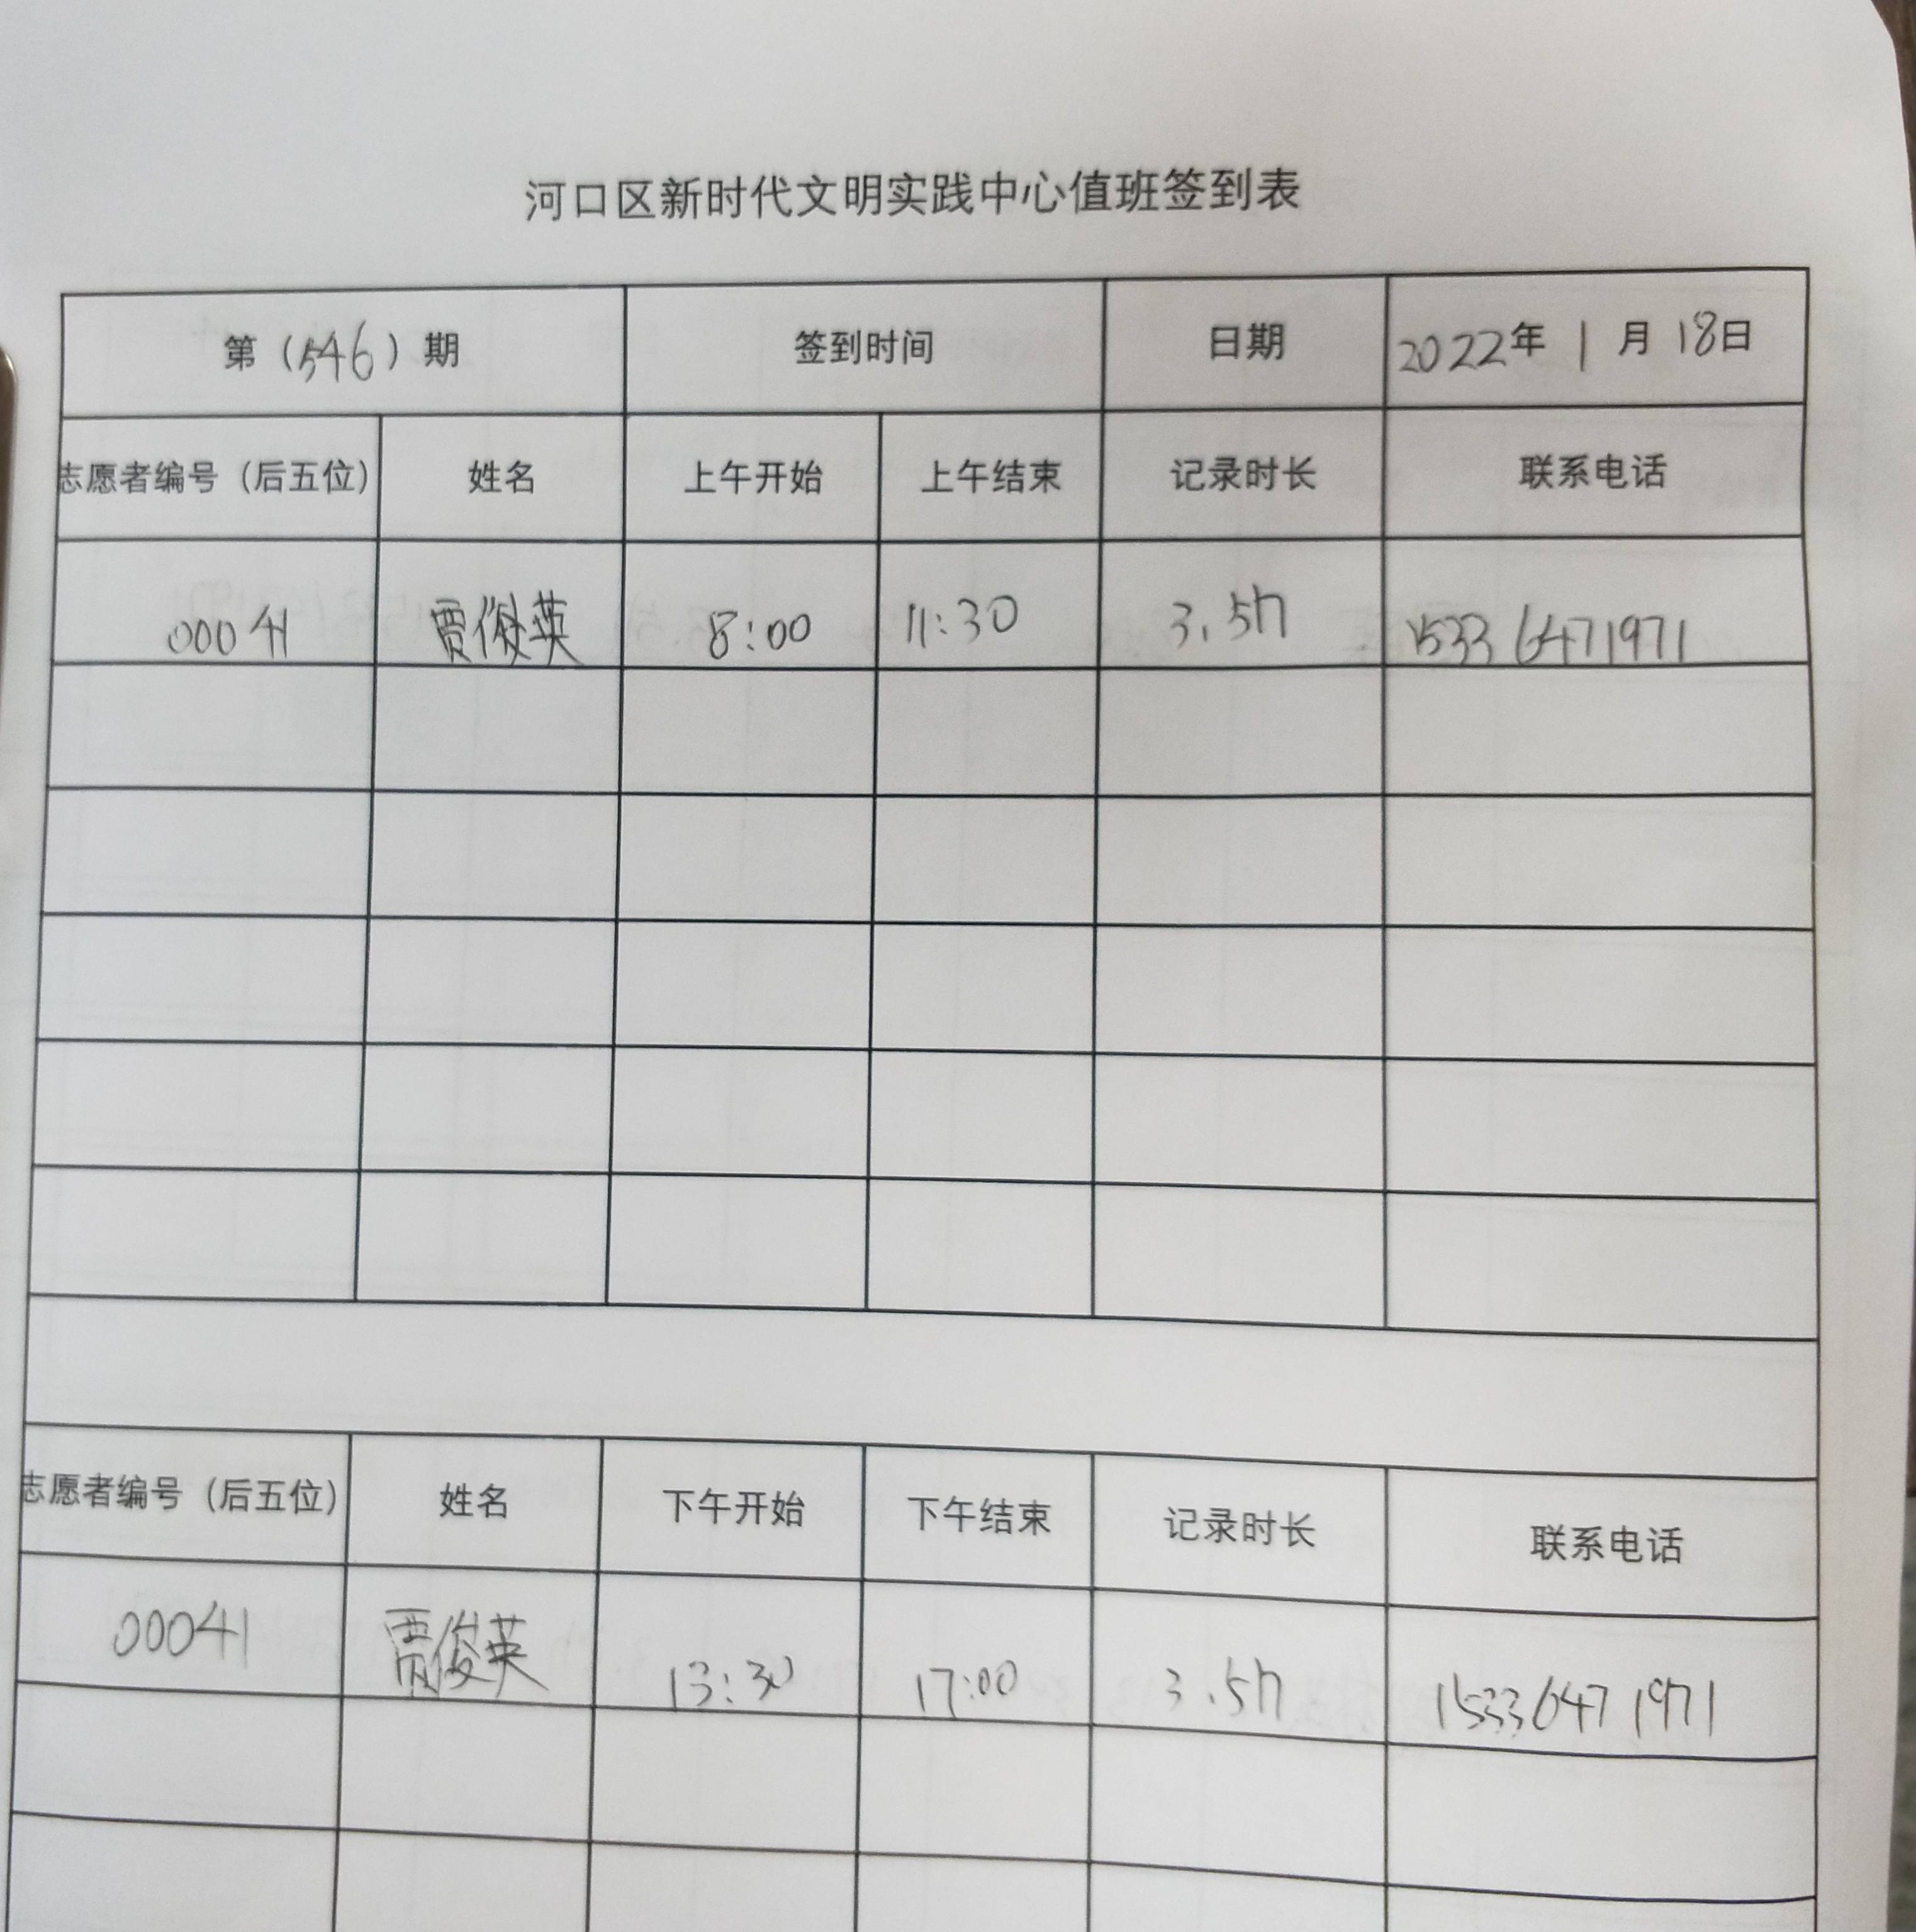 河口区新时代文明实践中心值班签到表
第（546）期 签到时间 日期 2022年 1 月 18日
志愿者编号（后五位） 姓名 上午开始 上午结束 记录时长 联系电话
00041 贾俊英 8:00 11:30 3.5h 15336471971
志愿者编号（后五位） 姓名 下午开始 下午结束 记录时长 联系电话
00041 贾俊英 13:30 17:00 3.5h 15336471971